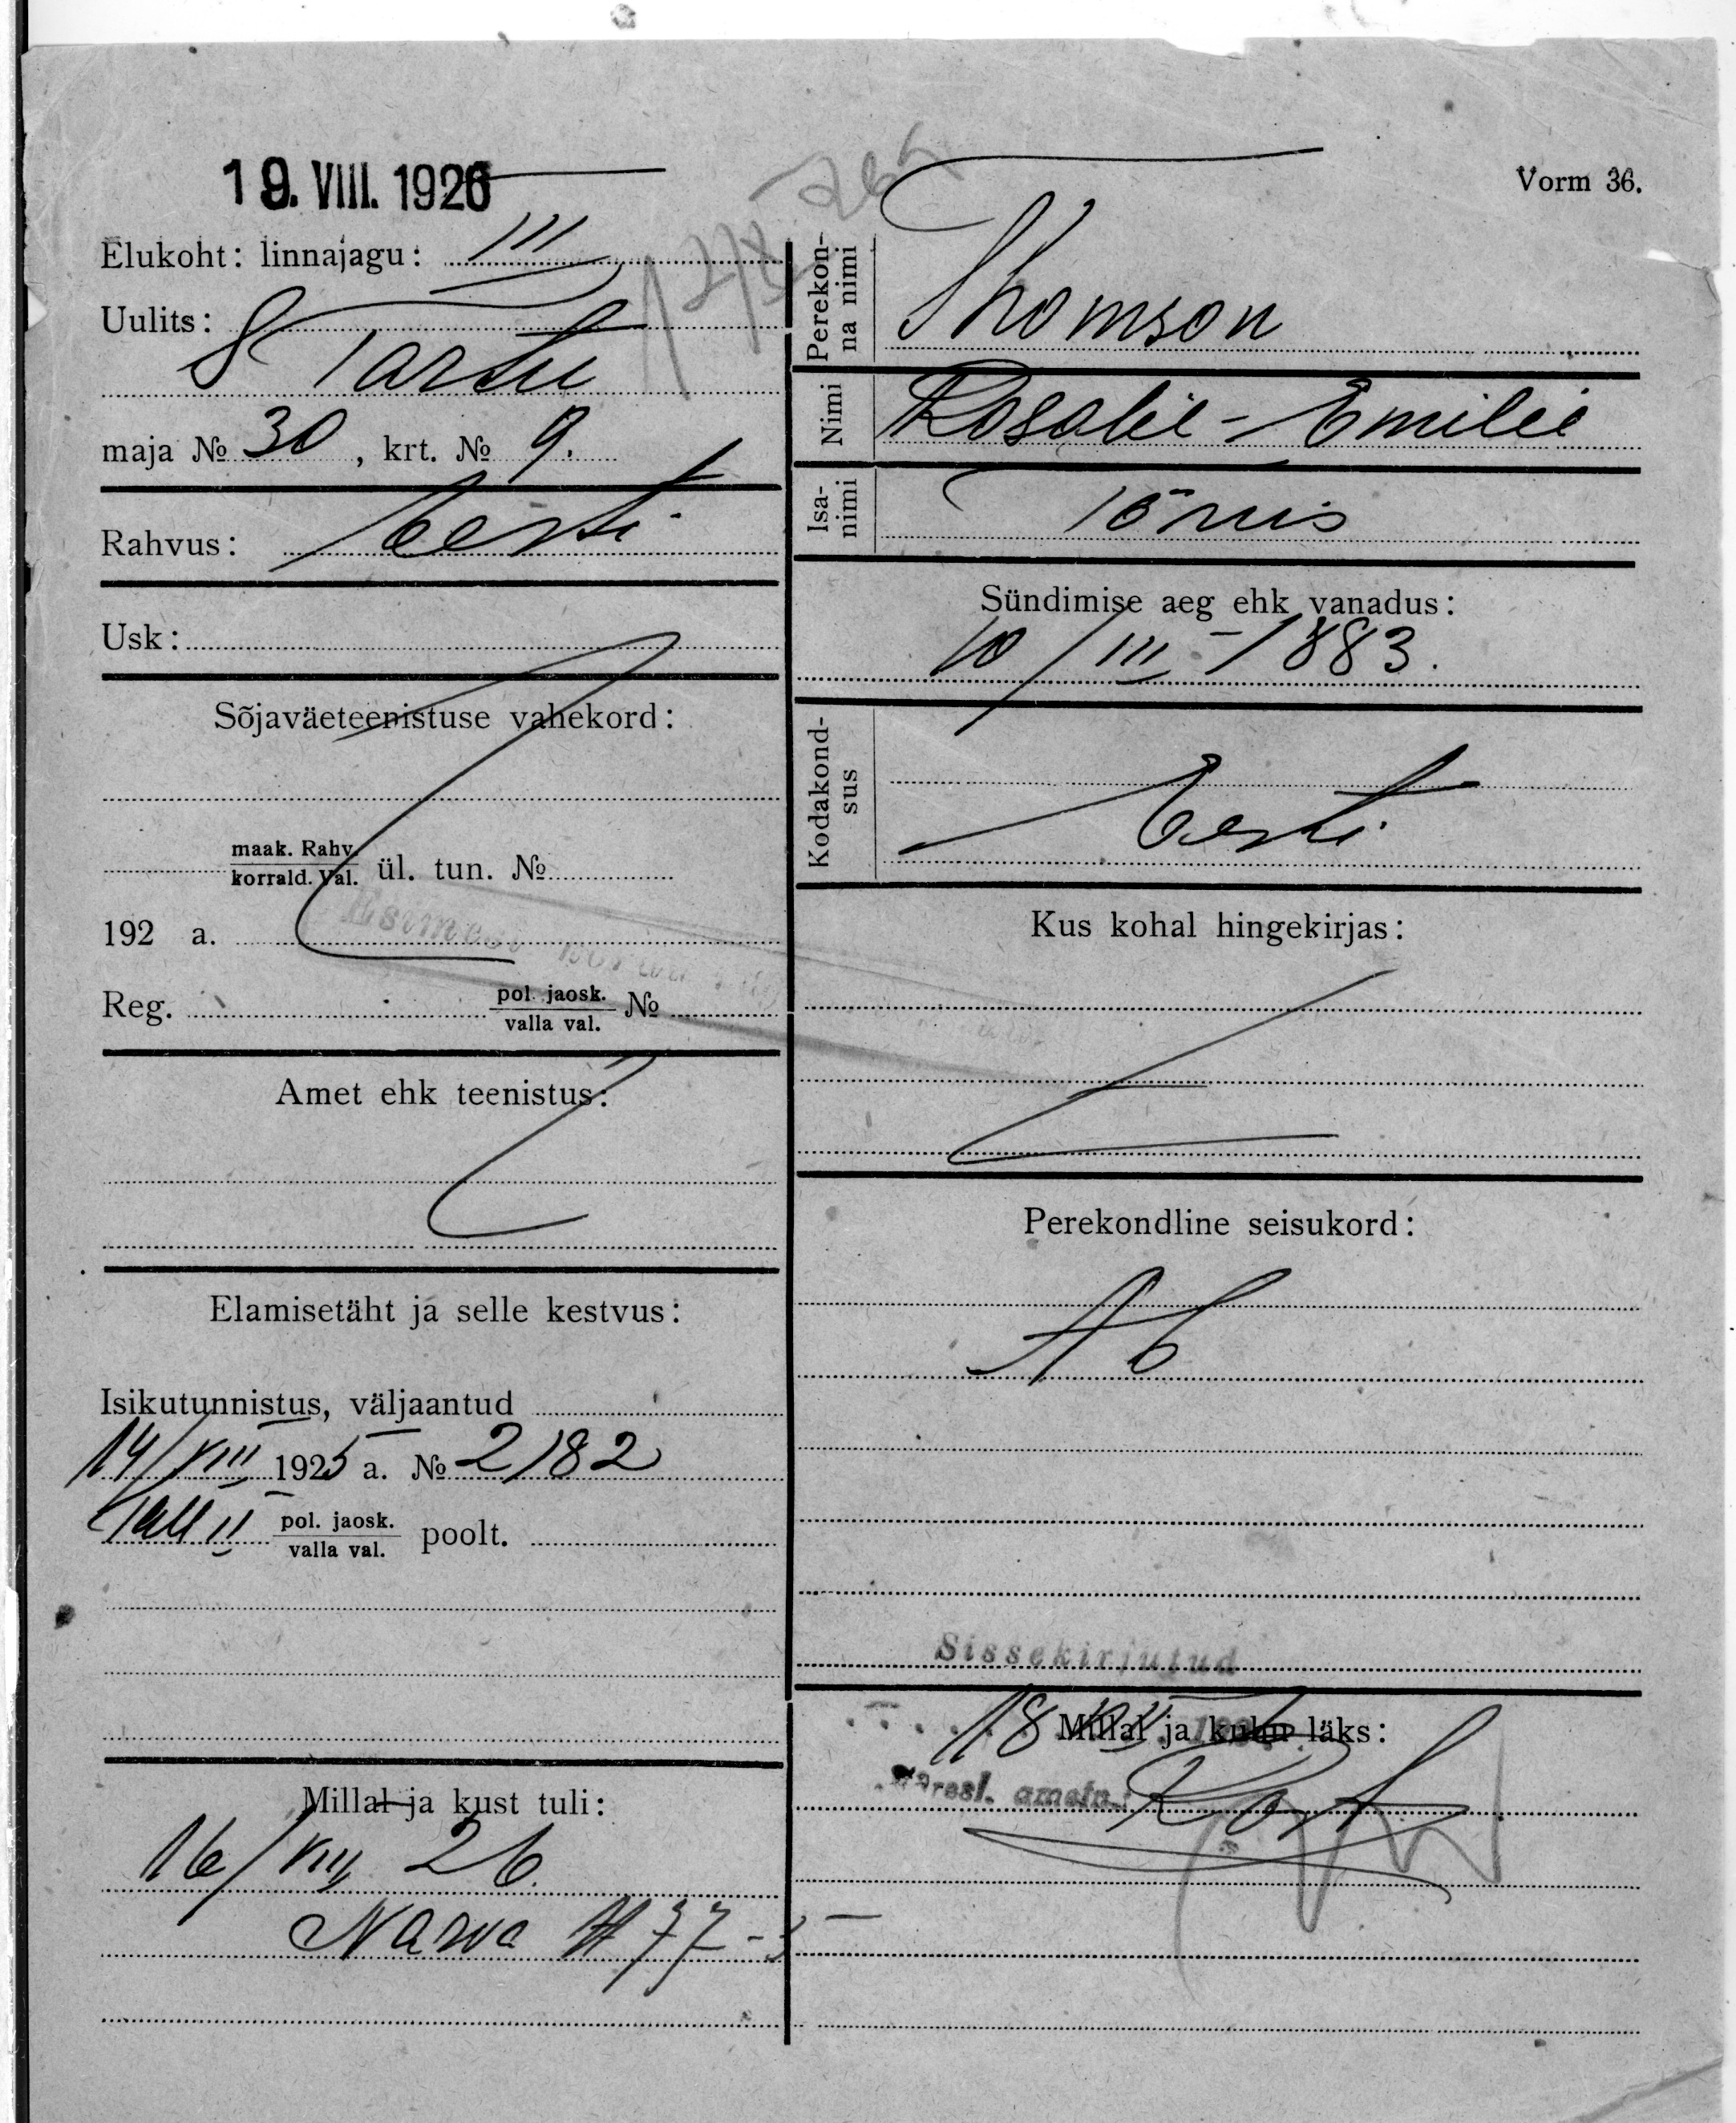 19. VIII. 1926
Elukoht: linnajagu: III
Uulits:
S Tartu
maja № 30, krt. № 9.
Rahvus: Eesti
Usk:
Sõjaväeteenistuse vahekord:
maak. Rahv.
korrald. Val. ül. tun. №
192 a.
Reg. pol. jaosk.
valla val. №
Amet ehk teenistus:
Elamisetäht ja selle kestvus:
Isikutunnistus, väljaantud
14/VIII 1925 a. № 2182
Tall II pol. jaosk.
valla val. poolt.
Millal ja kust tuli:
16/VIII 26.
Narva M 77 -
Vorm 36.
Perekon-
na nimi
Thomson
Nimi
Rosalie-Emilie
Isa-
nimi
Tõnis
Sündimise aeg ehk vanadus:
10/III - 1883.
Kodakond-
sus
Eesti
Kus kohal hingekirjas:
Perekondline seisukord:
Ab
Sissekirjutud
18
Millal ja kuhu läks: